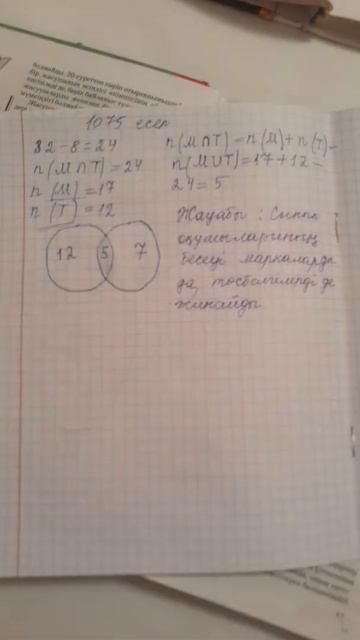 1075 есеп
32-8=24
n(M∩T)=24
n(M)=17
n(T)=12
12 5 7
n(M∩T)=n(M)+n(T)-
n(M∪T)=17+12-
24=5
Жауабы: Сынып
оқушыларының
бесеуі маркаларды
да, төсбелгілерді де
жинайды